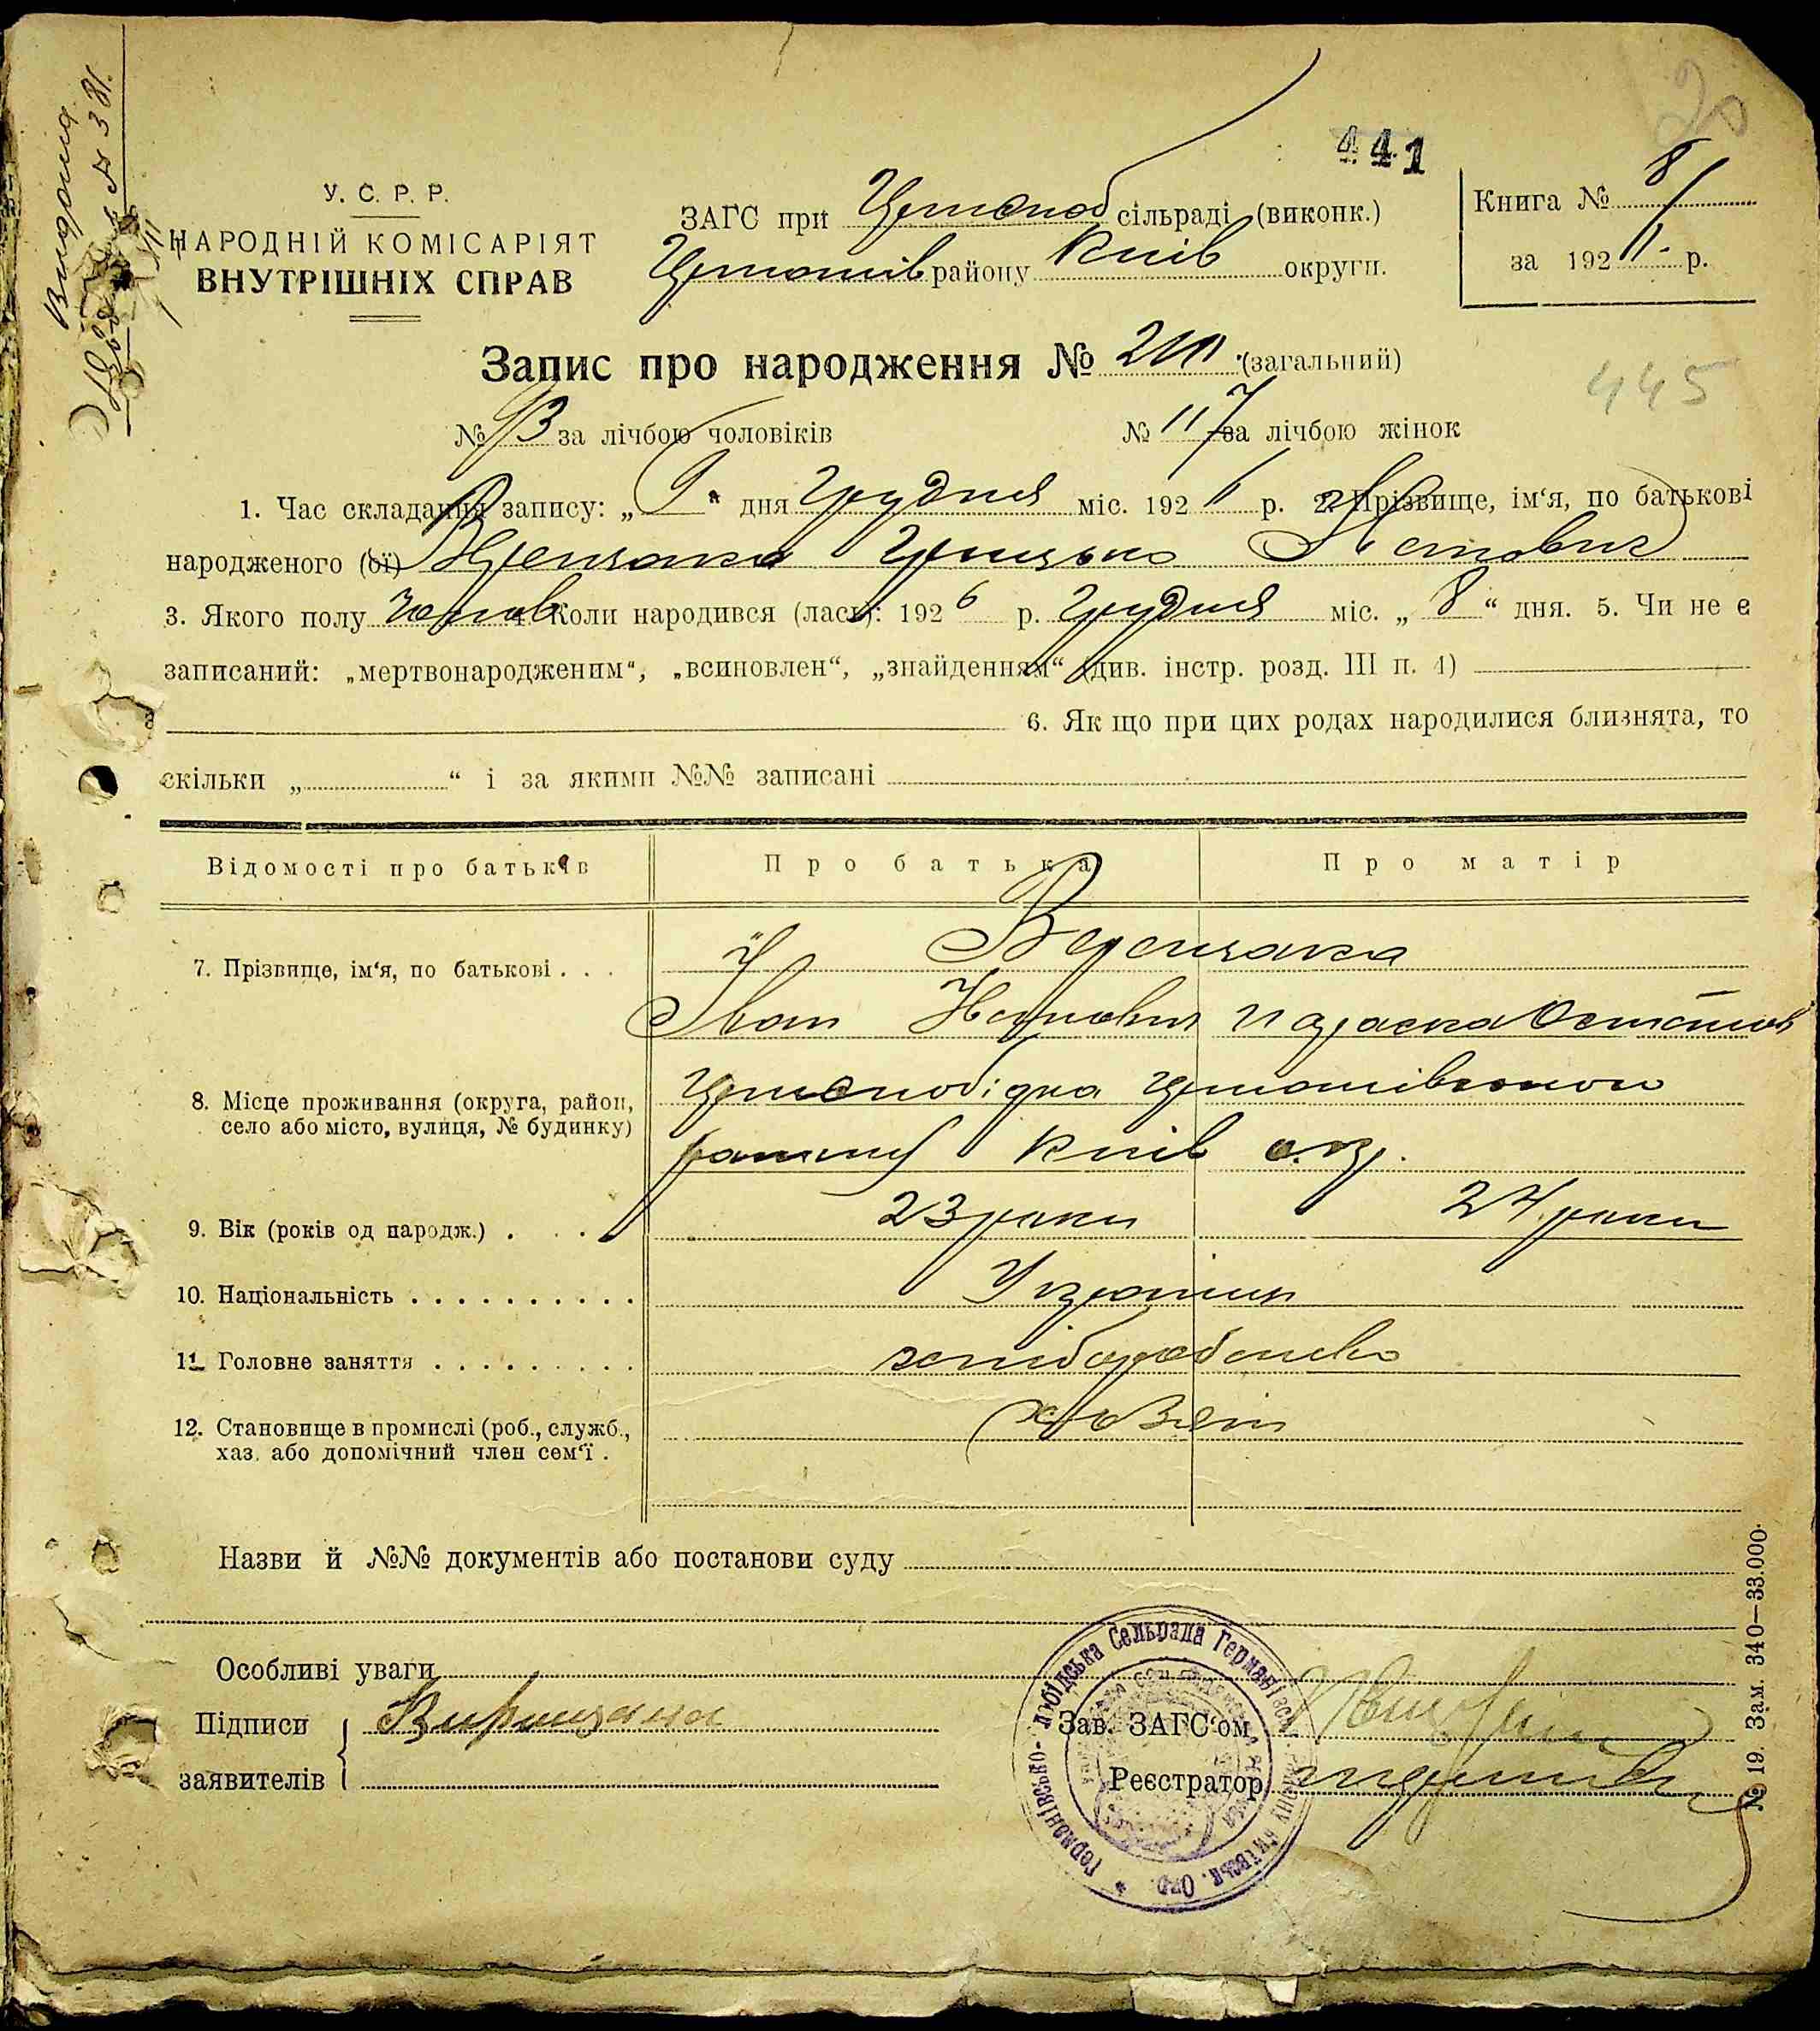 20
441
У. С. Р. Р.
НАРОДНІЙ КОМІСАРІЯТ
ВНУТРІШНІХ СПРАВ
ЗАГС при сільраді (виконк.)
району Київ округи.
Книга № 8/1
за 192 р.
Запис про народження № (загальний)
445
№ 93 за лічбою чоловіків
№ 117 за лічбою жінок
1. Час складання запису: „9“ дня Грудня міс. 1926 р. 2. Прізвище, ім‘я, по батькові
народженого (ої) Верещака Грицько
3. Якого полу чолов 4. Коли народився (лась): 1926 р. Грудня міс. „8“ дня. 5. Чи не є
записаний: „мертвонародженим“, „всиновлен“, „знайденням“ (див. інстр. розд. III п. 4)
6. Як що при цих родах народилися близнята, то
скільки „ “ і за якими №№ записані
Відомості про батьків
Про батька
Про матір
7. Прізвище, ім‘я, по батькові . . .
Верещака
Іван Карпович Параска Остапов
8. Місце проживання (округа, район,
село або місто, вулиця, № будинку)
району Київ окр.
9. Вік (років од народж.) . . .
23 роки
24 роки
10. Національність . . . . . . . . . .
Українці
11. Головне заняття . . . . . . . . .
хліборобство
12. Становище в промислі (роб., служб.,
хаз. або допомічний член сем‘ї .
хазяїн
Назви й №№ документів або постанови суду
Особливі уваги
Підписи
заявителів
Верещака
Зав. ЗАГС‘ом
Реєстратор
Германівсько-Слобідська Сельрада Германівськ. Району Київськ. Окр.
№ 19. Зам. 340—33.000.